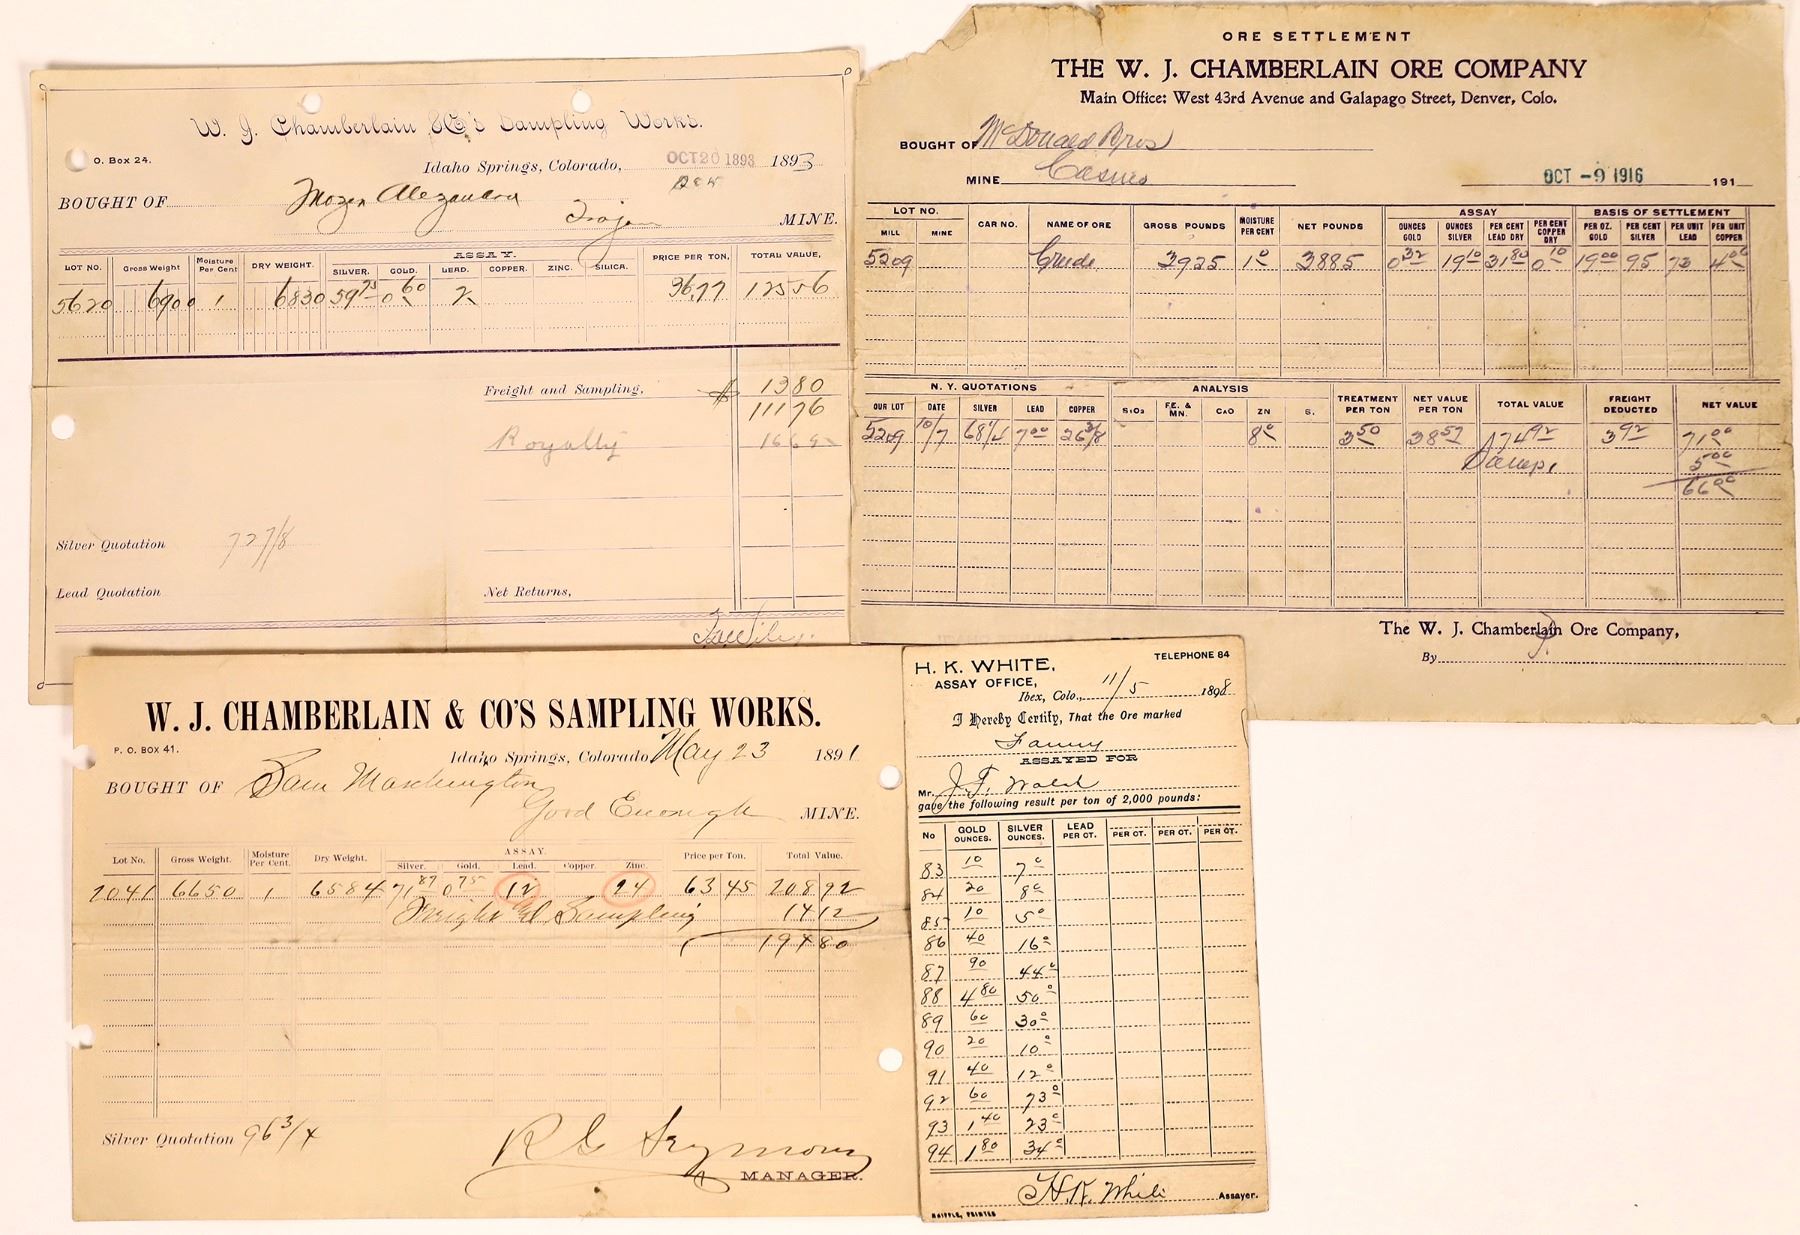 W. J. Chamberlain & Co's Sampling Works.
O. Box 24.
Idaho Springs, Colorado, OCT 20 1893 1893
BOUGHT OF Mozen Alexandra
Trojan MINE.
LOT NO. Gross Weight Moisture Per Cent DRY WEIGHT. ASSAY. SILVER. GOLD. LEAD. COPPER. ZINC. SILICA. PRICE PER TON, TOTAL VALUE,
5620 6900 1 6830 59 75 0 60 2 36.77 125 56
Freight and Sampling, 13 80
111 76
Royalty
Silver Quotation 72 7/8
Lead Quotation
Net Returns,
ORE SETTLEMENT
THE W. J. CHAMBERLAIN ORE COMPANY
Main Office: West 43rd Avenue and Galapago Street, Denver, Colo.
BOUGHT OF McDonald Bros
MINE OCT -9 1916 191
LOT NO. MILL MINE CAR NO. NAME OF ORE GROSS POUNDS MOISTURE PER CENT NET POUNDS ASSAY OUNCES GOLD OUNCES SILVER PER CENT LEAD DRY PER CENT COPPER DRY BASIS OF SETTLEMENT PER OZ. GOLD PER CENT SILVER PER UNIT LEAD PER UNIT COPPER
5209 Crude 3925 1 0 3885 0 32 19 10 31 80 0 10 19 00 95 73 4 06
N. Y. QUOTATIONS ANALYSIS
OUR LOT DATE SILVER LEAD COPPER SiO2 F.E. & MN. CaO ZN S. TREATMENT PER TON NET VALUE PER TON TOTAL VALUE FREIGHT DEDUCTED NET VALUE
5209 10/7 68 1/4 7 00 26 3/8 8 0 3 50 38 57 74 92 3 92 71 00
Samp. 5 00
66 00
The W. J. Chamberlain Ore Company,
By
W. J. CHAMBERLAIN & CO'S SAMPLING WORKS.
P. O. BOX 41.
Idaho Springs, Colorado May 23 1891
BOUGHT OF Sam Mashington
Good Enough MINE.
Lot No. Gross Weight. Moisture Per Cent. Dry Weight. ASSAY. Silver. Gold. Lead. Copper. Zinc. Price per Ton. Total Value.
2041 6650 1 6584 71 87 0 75 12 24 63 45 208 92
Freight & Sampling 14 12
194 80
Silver Quotation 96 3/4
R G Seymour
MANAGER.
H. K. WHITE, TELEPHONE 84
ASSAY OFFICE,
Ibex, Colo., 11/5 1898
I Hereby Certify, That the Ore marked
Fanny
ASSAYED FOR
Mr. J. F. Walsh
gave the following result per ton of 2,000 pounds:
No GOLD OUNCES. SILVER OUNCES. LEAD PER CT. PER CT. PER CT. PER CT.
83 10 7 0
84 20 8 0
85 10 5 0
86 40 16 0
87 90 44 0
88 4 80 50 0
89 60 30 0
90 20 10 0
91 40 12 0
92 60 73 0
93 1 40 23 0
94 1 80 34 0
H. K. White Assayer.